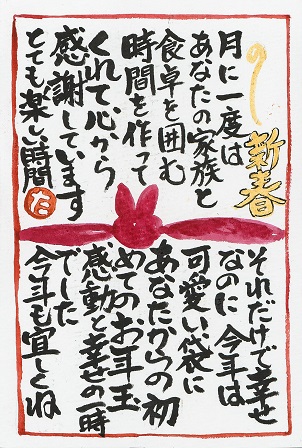 新春
月に一度は
あなたの家族と
食卓を囲む
時間を作って
くれて心から
感謝しています
とても楽しい時間
た
それだけで幸せ
なのに 今年は
可愛い袋に
あなたからの初
めてのお年玉
感動と幸せの一時
でした
今年も宜しくね